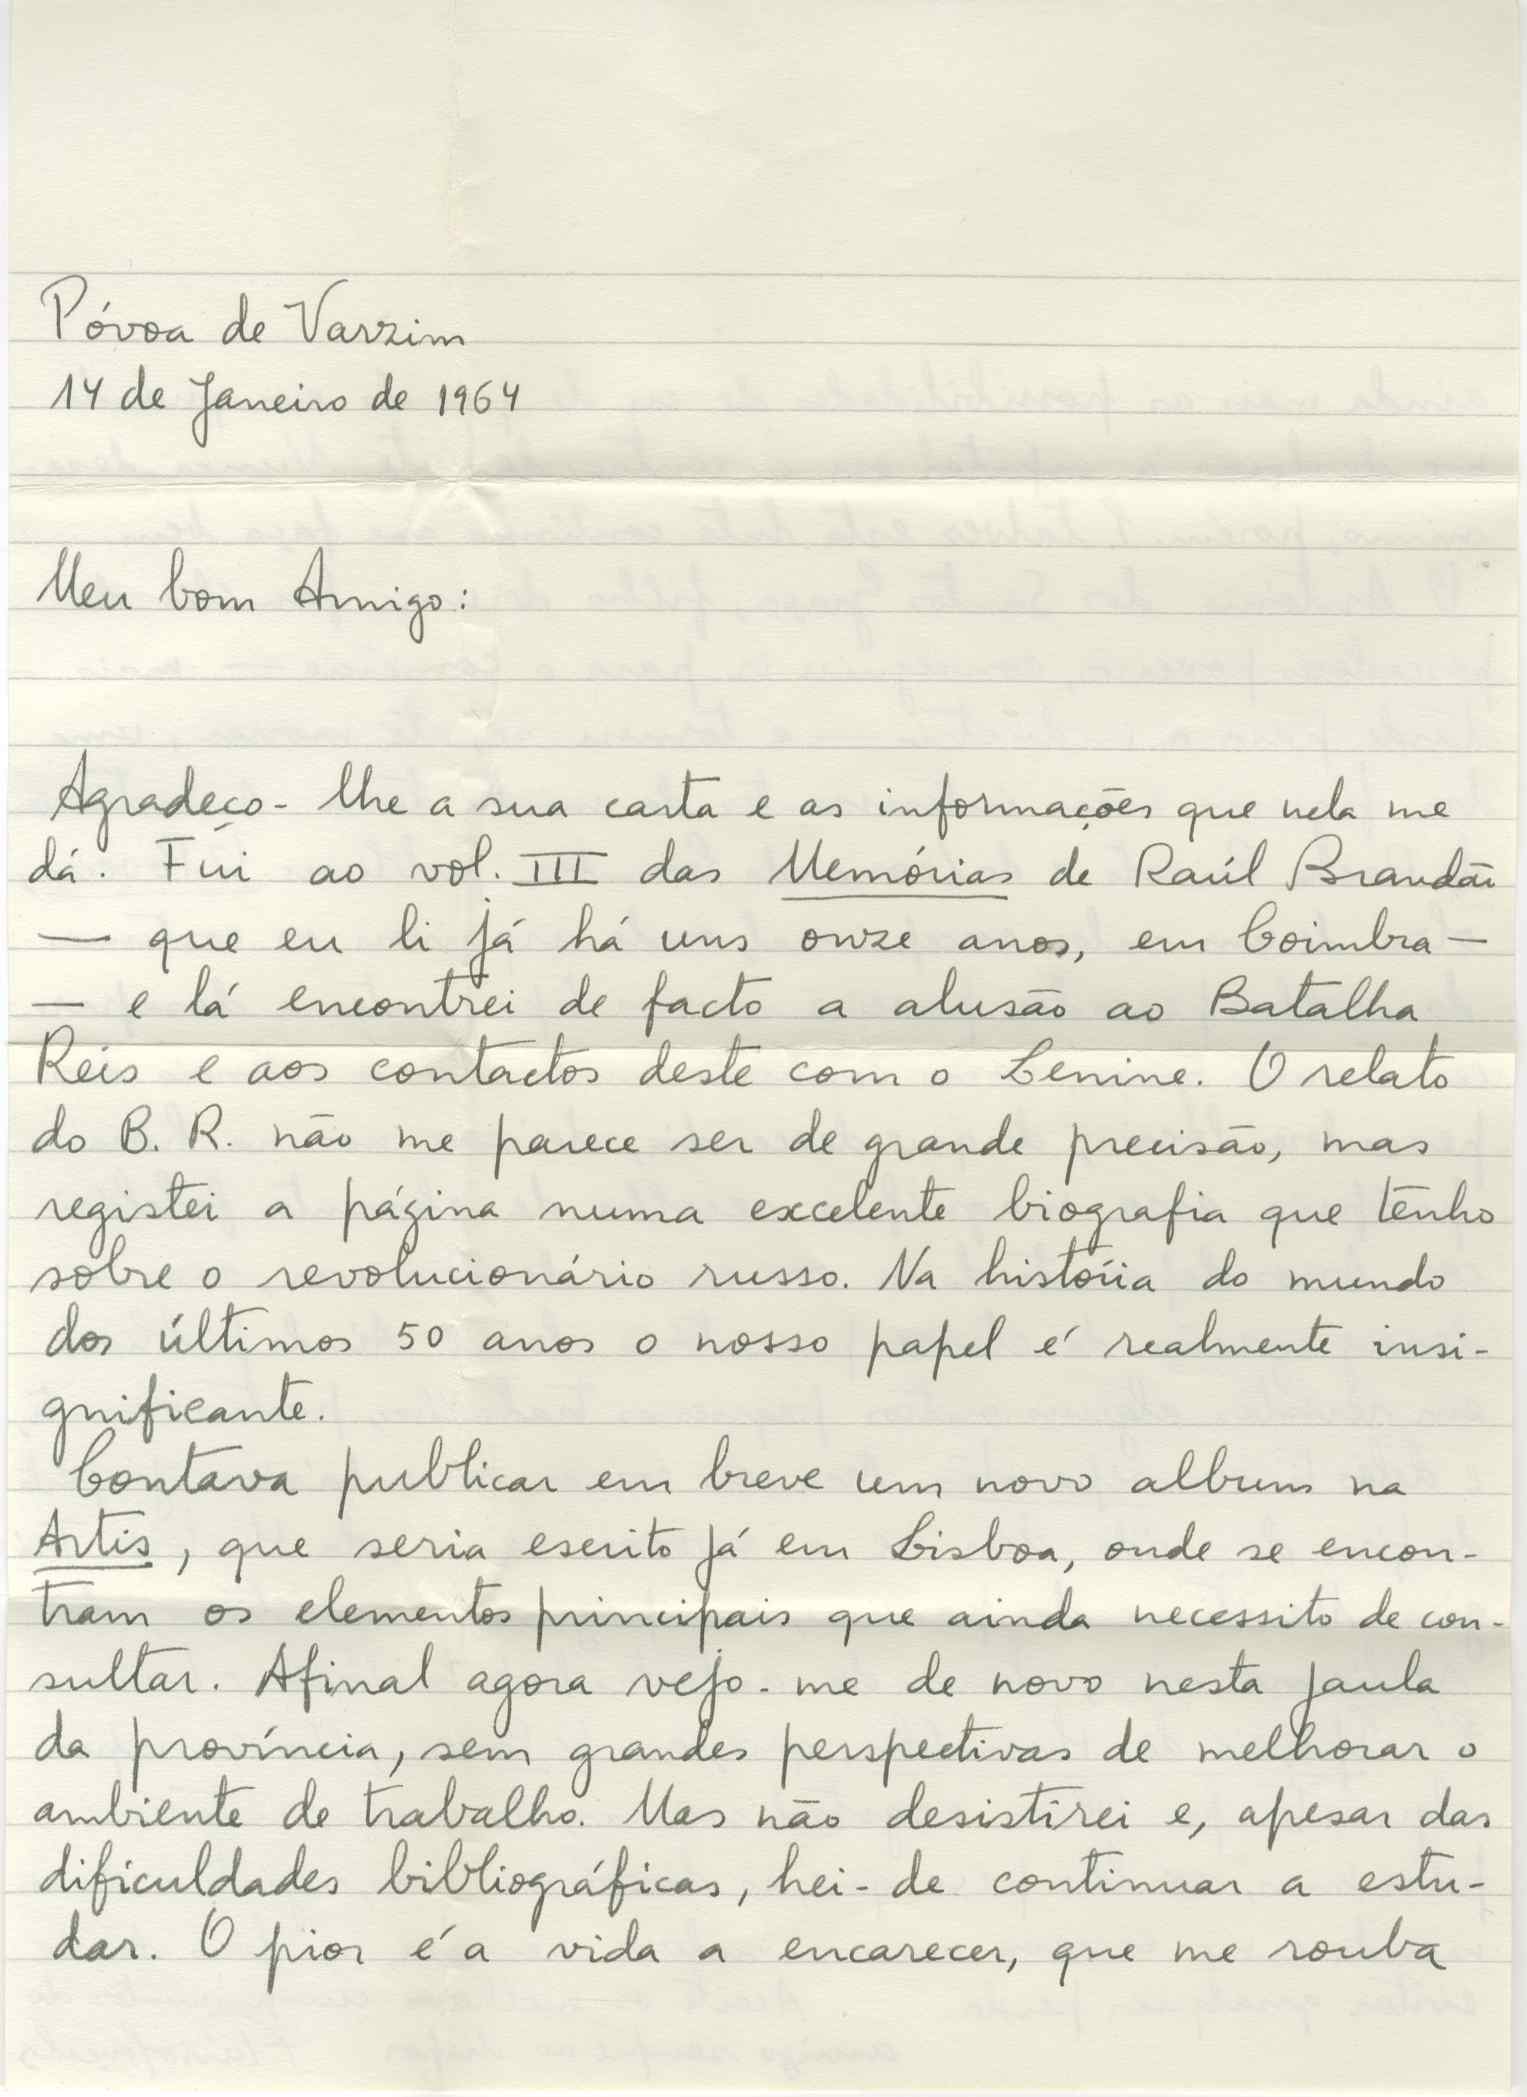 Póvoa de Varzim
14 de Janeiro de 1964
Meu bom Amigo:
Agradeço-lhe a sua carta e as informações que nela me
dá. Fui ao vol. III das Memórias de Raúl Brandão
— que eu li já há uns onze anos, em Coimbra —
— e lá encontrei de facto a alusão ao Batalha
Reis e aos contactos deste com o Lenine. O relato
do B. R. não me parece ser de grande precisão, mas
registei a página numa excelente biografia que tenho
sobre o revolucionário russo. Na história do mundo
dos últimos 50 anos o nosso papel é realmente insi-
gnificante.
Contava publicar em breve um novo album na
Artis, que seria escrito já em Lisboa, onde se encon-
tram os elementos principais que ainda necessito de con-
sultar. Afinal agora vejo-me de novo nesta jaula
da província, sem grandes perspectivas de melhorar o
ambiente de trabalho. Mas não desistirei e, apesar das
dificuldades bibliográficas, hei-de continuar a estu-
dar. O pior é a vida a encarecer, que me rouba